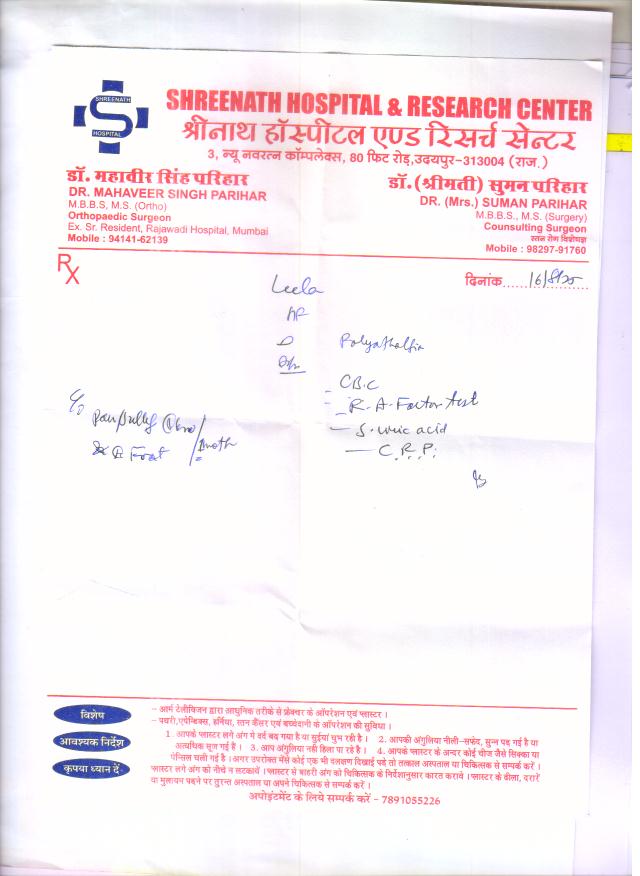 SHREENATH
HOSPITAL
SHREENATH HOSPITAL & RESEARCH CENTER
श्रीनाथ हॉस्पीटल एण्ड रिसर्च सेन्टर
3, न्यू नवरत्न कॉम्पलेक्स, 80 फिट रोड़,उदयपुर-313004 (राज.)
डॉ. महावीर सिंह परिहार
DR. MAHAVEER SINGH PARIHAR
M.B.B.S, M.S. (Ortho)
Orthopaedic Surgeon
Ex. Sr. Resident, Rajawadi Hospital, Mumbai
Mobile : 94141-62139
डॉ.(श्रीमती) सुमन परिहार
DR. (Mrs.) SUMAN PARIHAR
M.B.B.S., M.S. (Surgery)
Counsulting Surgeon
स्तन रोग विशेषज्ञ
Mobile : 98297-91760
Rx
दिनांक
Leela
C/o
CBC
R.A. Factor test
S. uric acid
C.R.P.
विशेष
आवश्यक निर्देश
कृपया ध्यान दें
- आर्म टेलीविजन द्वारा आधुनिक तरीके से फ्रेक्चर के ऑपरेशन एवं प्लास्टर ।
- पथरी,एपेन्डिक्स, हर्निया, स्तन कैंसर एवं बच्चेदानी के ऑपरेशन की सुविधा ।
1. आपके प्लास्टर लगे अंग मे दर्द बढ़ गया है या सुईयां चुभ रही है । 2. आपकी अंगुलिया नीली-सफेद, सुन्न पड़ गई है या
अत्यधिक सूज गई है । 3. आप अंगुलिया नही हिला पा रहे है । 4. आपके प्लास्टर के अन्दर कोई चीज जैसे सिक्का या
पेन्सिल चली गई है । अगर उपरोक्त मैसे कोई एक भी वलक्षण दिखाई पडे तो तत्काल अस्पताल या चिकित्सक से सम्पर्क करें ।
प्लास्टर लगे अंग को नीचे न लटकावें । प्लास्टर से बाहरी अंग को चिकित्सक के निर्देशानुसार कारत करावे । प्लास्टर के ढीला, दरारें
वा मुलायम पडने पर तुरन्त अस्पताल या अपने चिकित्सक से सम्पर्क करें ।
अपोइंटमेंट के लिये सम्पर्क करें - 7891055226